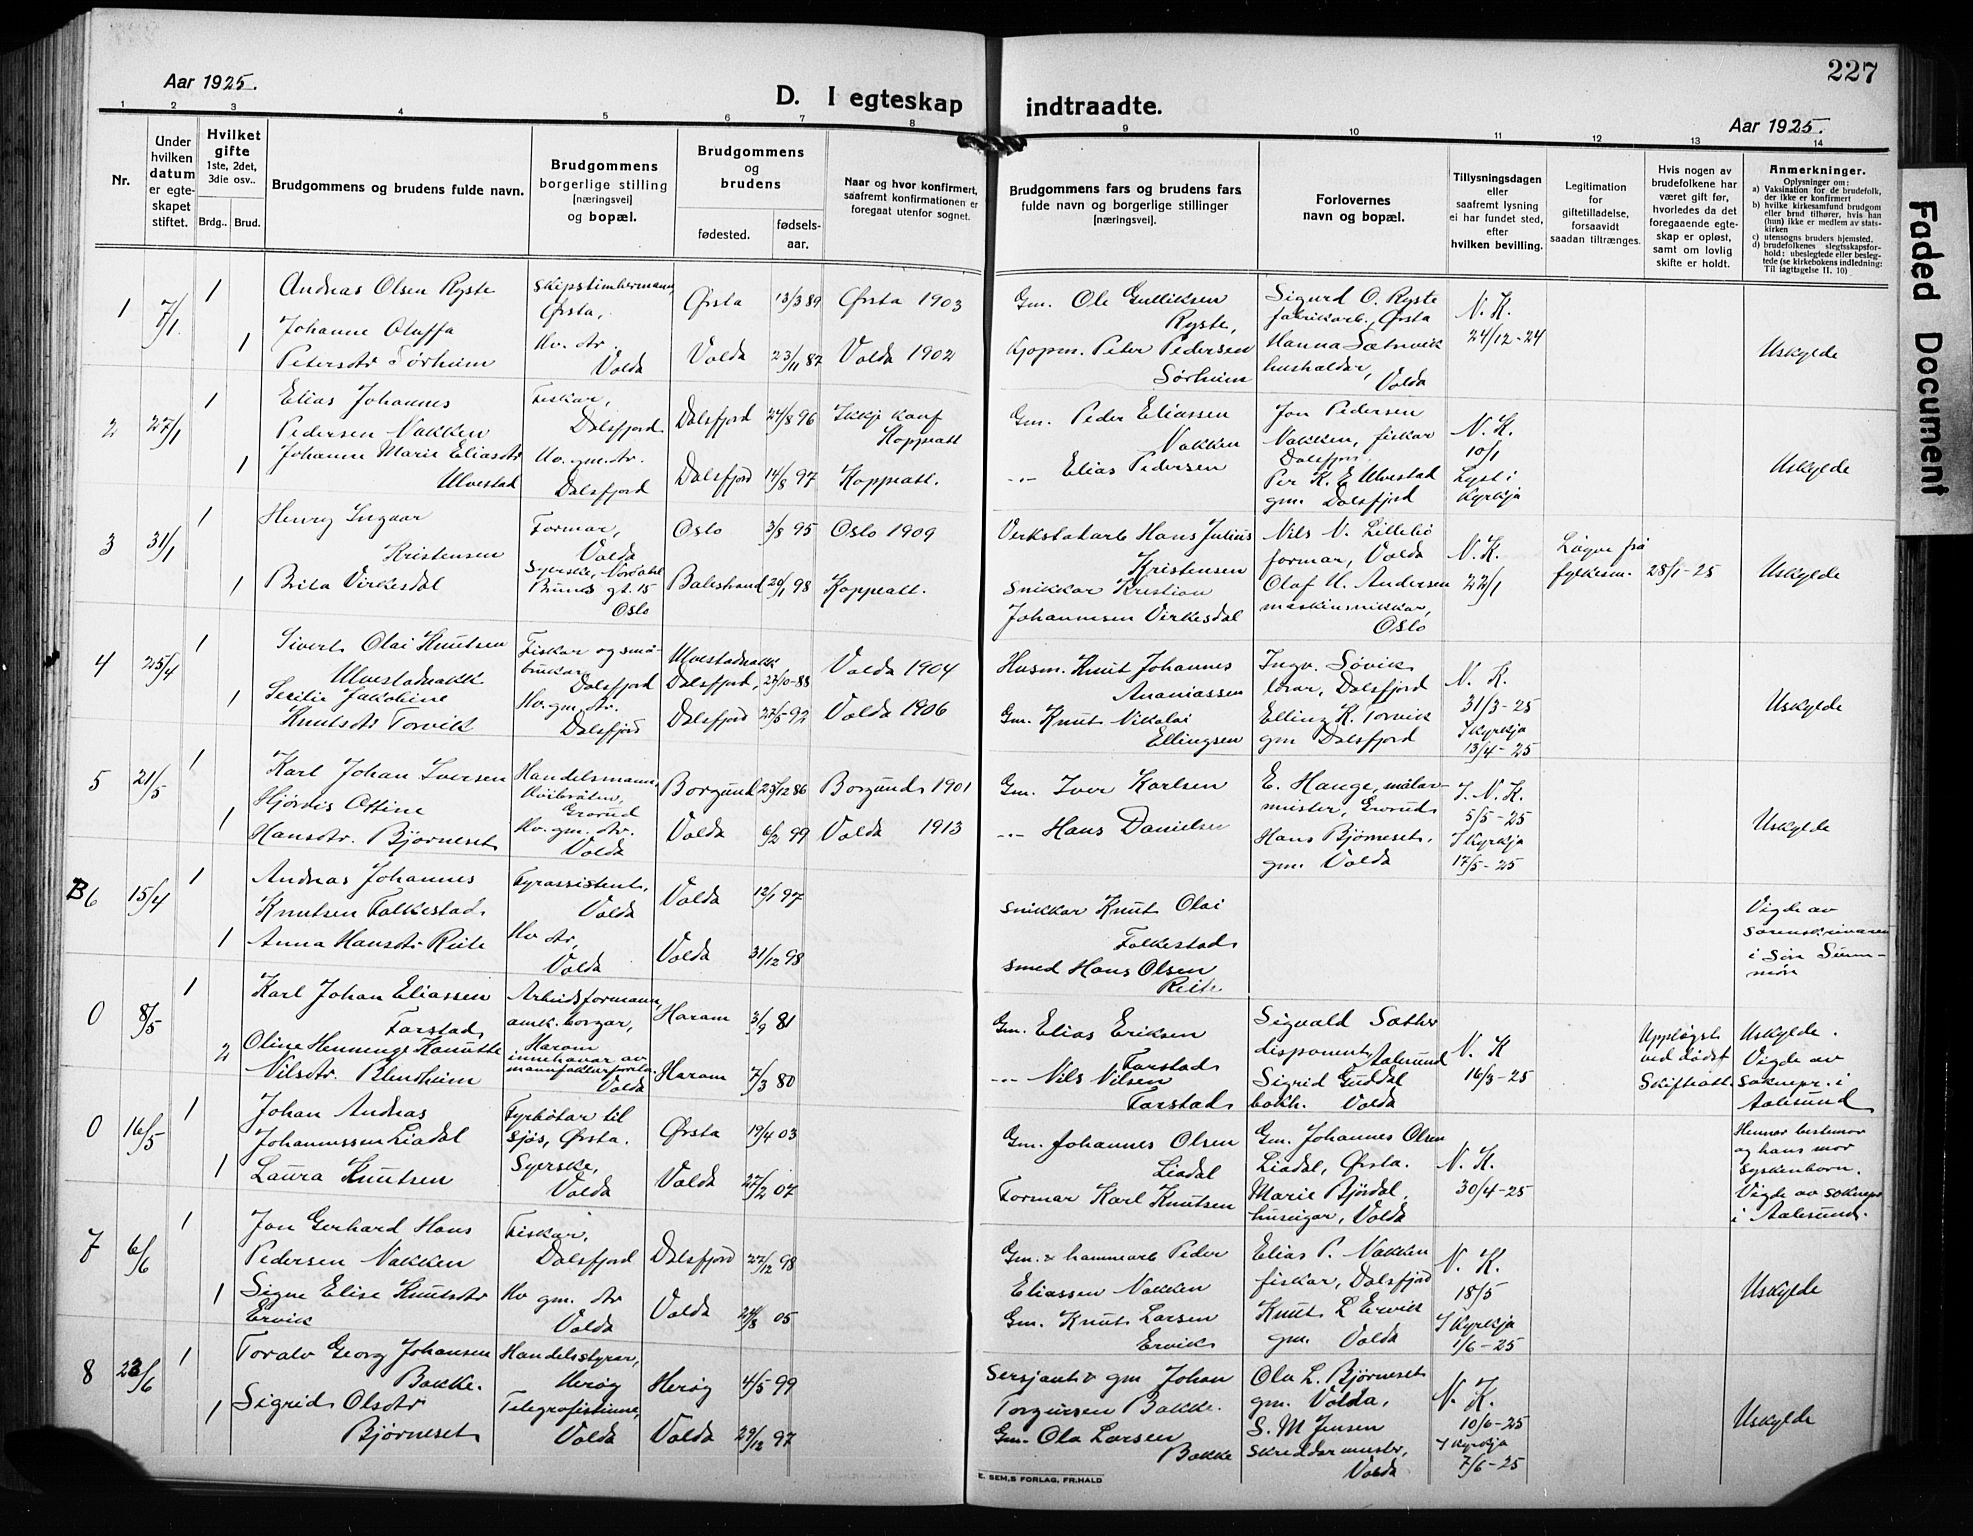 Aar 1925.
D. I egteskap indtraadte.
227
Aar 1925.
Faded Document
1 2 3 4 5 6 7 8 9 10 11 12 13 14
Nr.
Under hvilken datum er egteskapet stiftet.
Hvilket gifte
1ste, 2det, 3die osv..
Brdg.. Brud.
Brudgommens og brudens fulde navn.
Brudgommens borgerlige stilling [næringsvei] og bopæl.
Brudgommens og brudens
fødested.
fødselsaar.
Naar og hvor konfirmert, saafremt konfirmationen er foregaat utenfor sognet.
Brudgommens fars og brudens fars fulde navn og borgerlige stillinger [næringsvei].
Forlovernes navn og bopæl.
Tillysningsdagen eller saafremt lysning ei har fundet sted, efter hvilken bevilling.
Legitimation for giftetilladelse, forsaavidt saadan tiltrænges.
Hvis nogen av brudefolkene har været gift før, hvorledes da det foregaaende egteskap er opløst, samt om lovlig skifte er holdt.
Anmerkninger.
Oplysninger om:
a) Vaksination for de brudefolk, der ikke er konfirmert
b) hvilke kirkesamfund brudgom eller brud tilhører, hvis han (hun) ikke er medlem av statskirken
c) utensogns bruders hjemsted.
d) brudefolkenes slegtsskapsforhold: ubeslegtede eller beslegtede (se kirkebokens indledning: Til iagttagelse II. 10)
1 7/1 1 Andreas Olsen Ryste
Skipstimbermann, Ørsta,
Ørsta 13/3 89 Ørsta 1903
Gm. Ole Gulliksen Ryste,
Sigurd O. Ryste fabrikarb., Ørsta
N. K. 24/12-24
1 Johanne Oluffa Petersdtr Sørheim
Hv. dtr. Volda
Volda 23/11 87 Volda 1902
Kjøpm. Peter Pedersen Sørheim
Hanna Sætrevik husholdar, Volda
Uskylde
2 27/1 1 Elias Johannes Pedersen Nakken
Fiskar, Dalsfjord
Dalsfjord 24/8 96 Ikkje konf Koppeatt
Gm. Peder Eliassen Nakken
Jon Pedersen Nakken, fiskar Dalsfjord
N. K. 10/1
1 Johanne Marie Eliasdtr Ulvestad
Hv. gm. dtr. Dalsfjord
Dalsfjord 14/8 97 Koppeatt.
-"- Elias Pedersen
Per K. E Ulvestad gm. Dalsfjord
Lyst i Kyrkja
Uskylde
3 31/1 1 Henry Ingvar Kristensen
Formar, Volda
Oslo 3/8 95 Oslo 1909
Verkstadarb Hans Julius Kristensen
Nils N. Lillebø formar, Volda
N. K. 22/1
Løyve frå fylkesm.
28/1-25
Uskylde
1 Brita Virkesdal
Syerske, Nordahl Bruns gt. 15 Oslo
Balestrand 20/1 98 Koppeatt.
Snikkar Kristian Johannesen Virkesdal
Olaf U. Andersen maskinsnikkar, Oslo
4 25/4 1 Sivert Olai Knutsen Ulvestadbakk
Fiskar og småbrukar Dalsfjord
Ulvestadbakk, Dalsfjord, 27/10-88 Volda 1904
Husm. Knut Johannes Ananiassen
Ingv. Søvik lærar, Dalsfjord
N. K. 31/3-25
1 Sesilie Jakobine Knutsdtr Torvik
Hv. gm. dtr. Dalsfjord
Dalsfjord 27/5-92 Volda 1906
Gm. Knut Nikolai Ellingsen
Elling K. Torvik gm Dalsfjord
I Kyrkja 13/4-25
Uskylde
5 21/5 1 Karl Johan Iversen
Handelsmann, Grorud
Borgund 25/12 86 Borgund 1901
Gm. Iver Karlsen
E. Hauge, målarmeister, Grorud
I. N. K. 5/5-25
1 Hjørdis Ottine Hansdtr. Bjørneset
Hv. gm. dtr. Volda
Volda 6/2 99 Volda 1913
-"- Hans Danielsen
Hans Bjørneset, gm. Volda
I Kyrkja 17/5-25
Uskylde
B6 15/4 1 Andreas Johannes Knutsen Folkestad
Fyrassistent, Volda
Volda 12/1 97
Snikkar Knut Olai Folkestad
1 Anna Hansdtr Reite
Hv dtr, Volda
Volda 31/12 98
Smed Hans Olsen Reite
Vigde av sorenskrivaren i Søre Sunnmøre
0 8/5 1 Karl Johan Eliassen Farstad
Arbeidsformann, amk. borgar, Haram
Haram 3/9 81
Gm. Elias Eriksen Farstad
Sigvald Sæther disponent, Aalesund
N. K 16/3-25
2 Oline Henninge Kanutte Nilsdtr. Blindheim
innehavar av manufakturforretn. Volda
Haram 7/3 80
-"- Nils Nilsen Farstad
Sigrid Guddal bokh. Volda
Uppløyst ved død Skifteatt.
Uskylde. Vigde av soknepr. i Aalesund
0 16/5 1 Johan Andreas Johannessen Liadal
Fyrbøtar til sjøs, Ørsta.
Ørsta 19/4 03
Gm. Johannes Olsen Liadal
Gm. Johannes Olsen Liadal, Ørsta.
N. K. 30/4-25
1 Laura Knutsen
Syerske, Volda
Volda 27/2 07
Formar Karl Knutsen
Marie Bjørdal, huseigar, Volda
Hennar bestemor og hans mor syskenborn. Vigde av soknepr i Aalesund.
7 6/6 1 Jon Gerhard Hans Pedersen Nakken
Fiskar, Dalsfjord
Dalsfjord 27/12 98
Gm. & hammarb Peder Eliassen Nakken
Elias P. Nakken fiskar, Dalsfjord
N. K. 18/5
1 Signe Elise Knutsdtr Ervik
Hv gm. dtr Volda
Volda 24/8 05
Gm. Knut Larsen Ervik
Knut L Ervik gm. Volda
I Kyrkja 1/6-25
Uskylde
8 23/6 1 Toralv Georg Johansen Bakke.
Handelsstyrar, Herøy
Herøy 4/5 99
Sersjant & gm Johan Torgersen Bakke.
Ola L. Bjørneset gm. Volda,
N. K. 10/6-25
1 Sigrid Olsdtr Bjørneset
Telegrafistinne, Volda
Volda 29/12 97
Gm. Ola Larsen Bakke
S. M Jensen skreddarmeistr, Volda
I Kyrkja 7/6-25
Uskylde
E. SEM,S FORLAG, FR.HALD